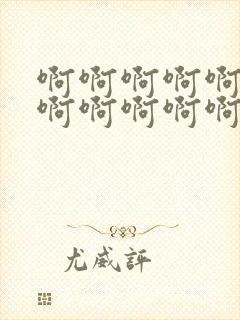 啊啊啊啊啊
啊啊啊啊啊
尤威評